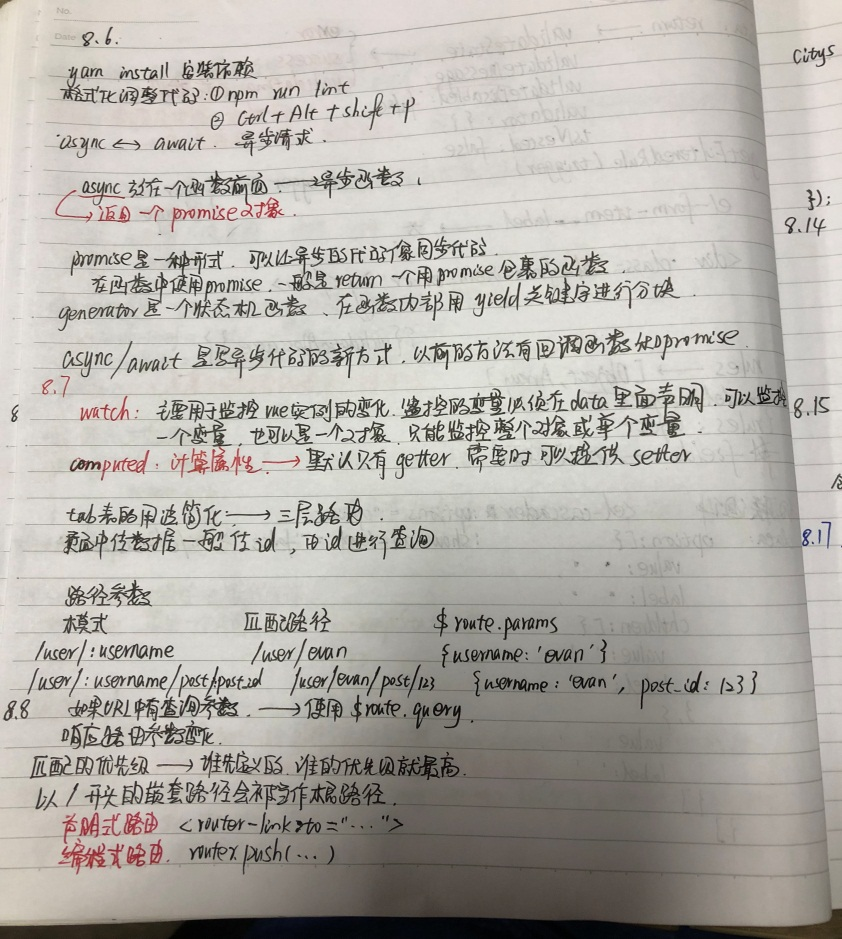 No.
Date 8.6.
yarn install 安装依赖
格式化调整代码:① npm run lint
② Ctrl+Alt+shift+p
async ↔ await. 异步请求.
async 放在一个函数前面 → 异步函数,
→ 返回一个 promise 对象.
promise是一种形式. 可以让异步的代码像同步代码.
在函数中使用promise, 一般是return 一个用promise包裹的函数.
generator是一个状态机函数、在函数内部用 yield关键字进行分块.
async/await 是写异步代码的新方式, 以前的方法有回调函数和promise.
8.7
watch: 主要用于监控vue实例的变化. 监控的变量必须在data里面声明, 可以监控
一个变量, 也可以是一个对象, 只能监控整个对象或单个变量.
computed: 计算属性 → 默认只有getter, 需要时可以提供 setter
tab表的用法简化 → 三层路由.
页面中传数据一般传id, 由id进行查询
路径参数
模式 匹配路径 $route.params
/user/:username /user/evan {username:'evan'}
/user/:username/post/:post_id /user/evan/post/123 {username:'evan', post_id:123}
8.8 如果URL中有查询参数. → 使用$route.query.
响应路由参数变化.
匹配的优先级 → 谁先定义的, 谁的优先级就最高.
以 / 开头的嵌套路径会被当作根路径.
声明式路由 <router-link :to="...">
编程式路由. router.push(...)
Citys
});
8.14
8
8.15
8.17